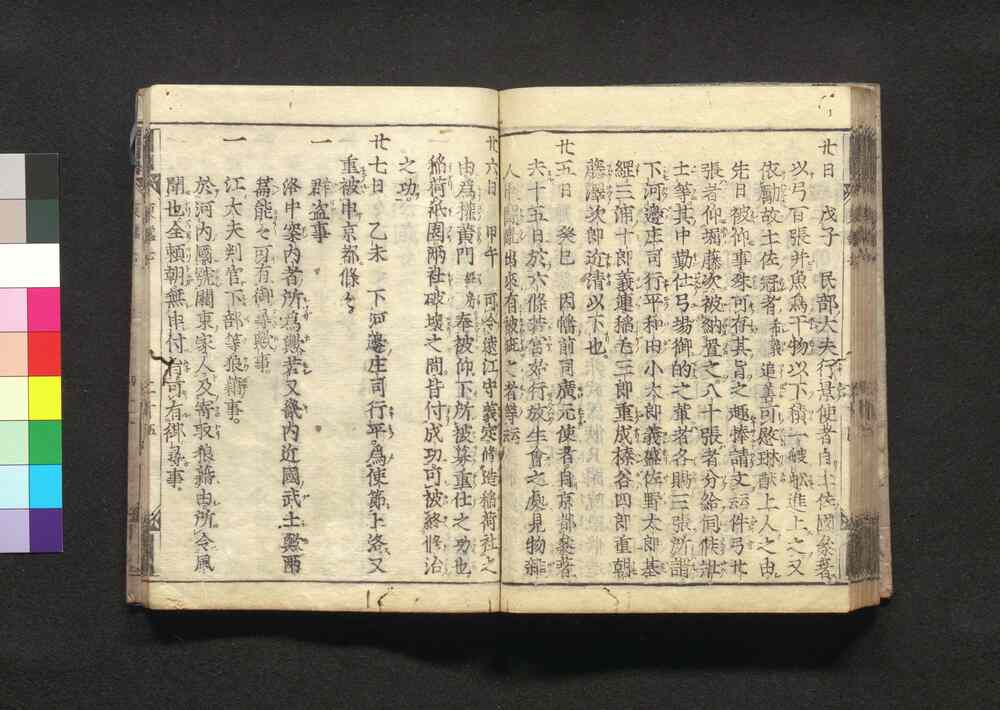 廿日 戊子 民部大夫行景使者自土佐國参著
以弓百張并魚鳥干物以下積一艘状進上之又
依當故土佐冠者希義追善可慰琳猷上人之由
先日被仰事殊可存其旨之趣捧請文云件弓廿
張者仰堀藤次被納置之八十張者分給伺候壯
士等其中勤仕弓場御的之輩者各賜三張所謂
下河邊庄司行平和田小太郎義盛佐野太郎基
綱三浦十郎義連稲毛三郎重成榛谷四郎重朝
藤澤次郎近清以下也
廿五日 癸巳 因幡前司廣元使者自京都参著
去十五日於六條若宮始行放生會之處見物雑
人中鬪亂出来有被疵之者等云
廿六日 甲午 可令遠江守義定修造稲荷社之
由爲權黄門經房奉被仰下所被募重任之功也
稲荷祇園兩社破壊之間皆付成功可被終修治
之功
廿七日 乙未 下河邊庄司行平爲使節上洛又
重被申京都條々
一 群盗事
洛中案内者所爲歟若又畿内近國武士與爾
蒿能々可有御尋歟事
一 江大夫判官下部等狼藉事
於河内國號關東家人及寄取狼藉由所令風
聞也全頼朝無申付有可有御尋事